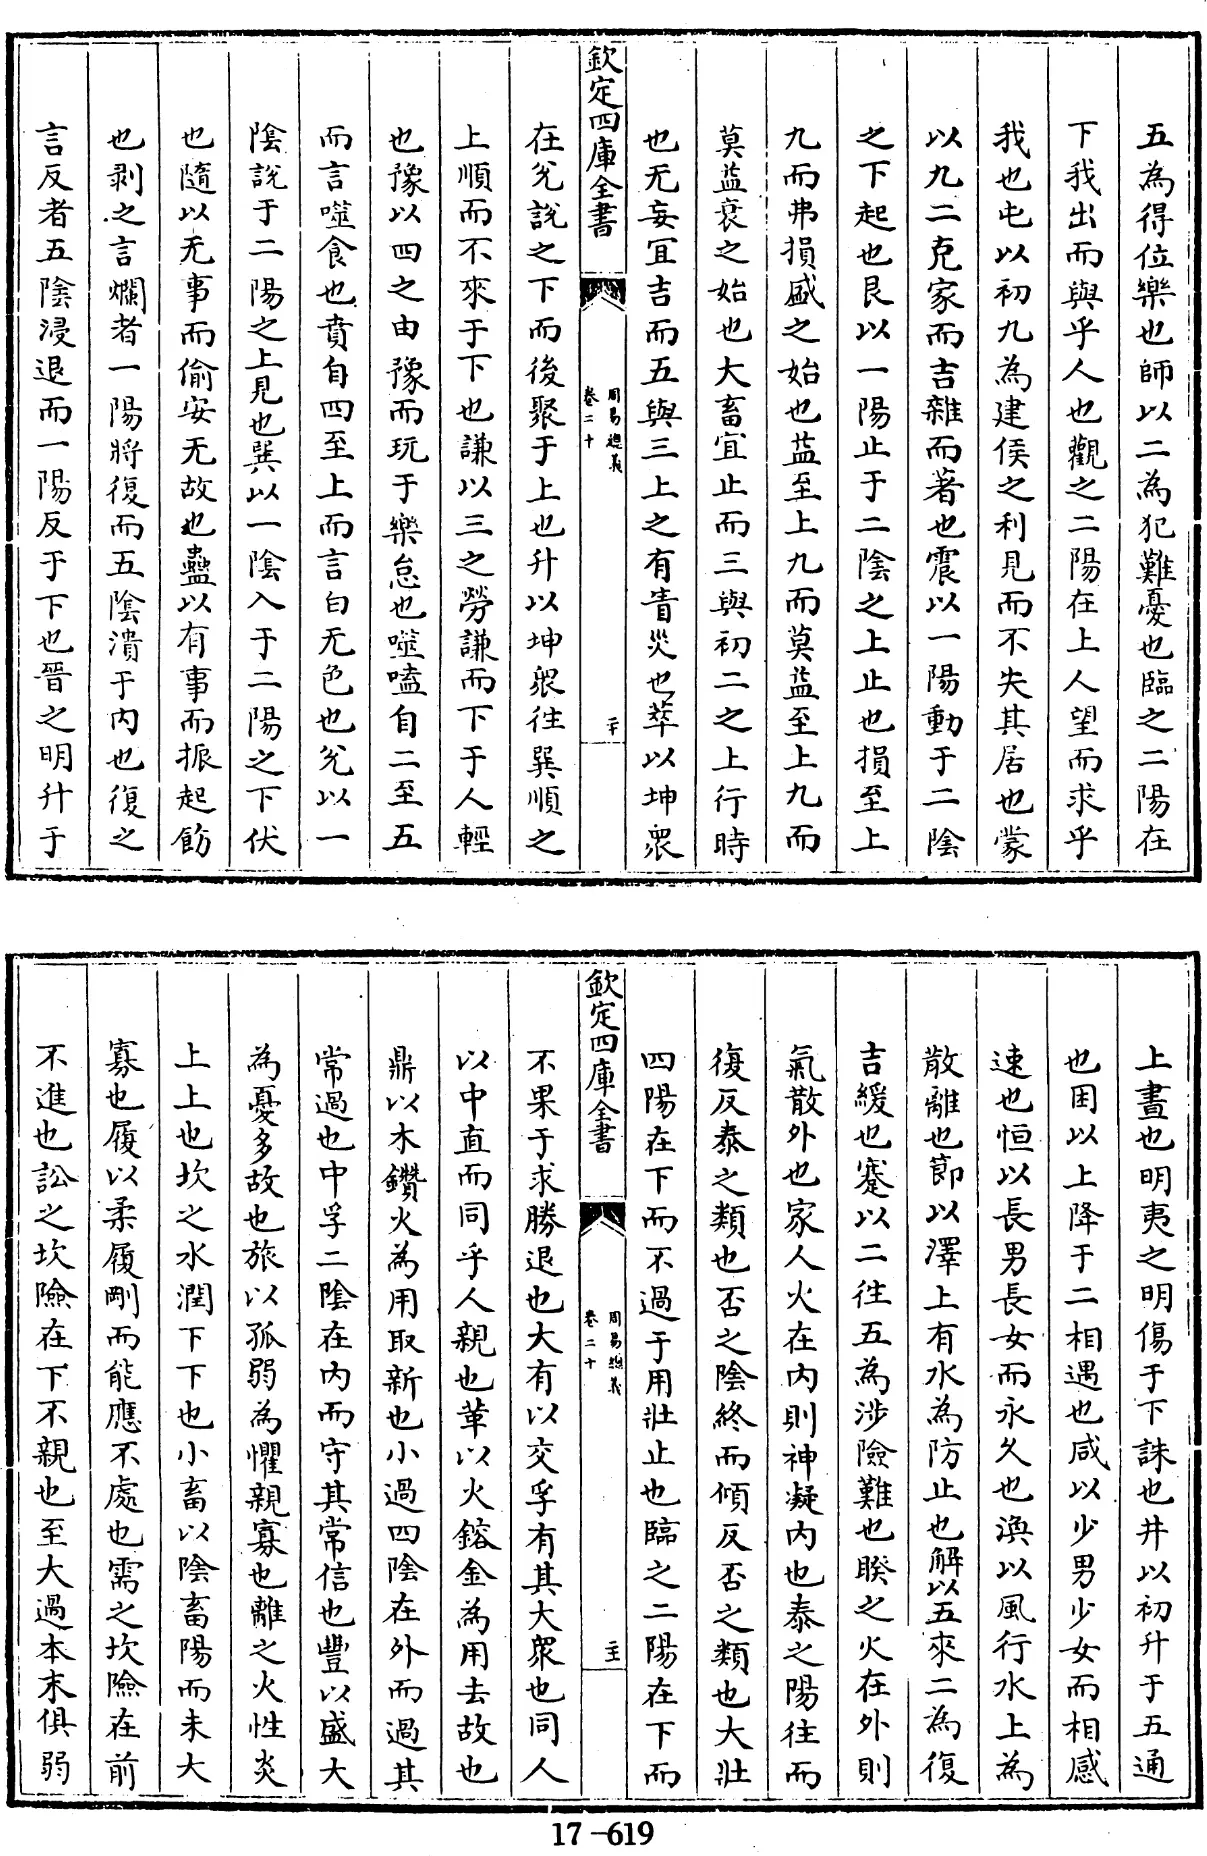 五為得位樂也師以二為犯難憂也臨之二陽在
下我出而與乎人也觀之二陽在上人望而求乎
我也屯以初九為建侯之利見而不失其居也蒙
以九二克家而吉雜而著也震以一陽動于二陰
之下起也艮以一陽止于二陰之上止也損至上
九而弗損盛之始也益至上九而莫益至上九而
莫益衰之始也大畜宜止而三與初二之上行時
也无妄宜吉而五與三上之有眚災也萃以坤衆
欽定四庫全書
周易總義
卷二十
二十
在兊說之下而後聚于上也升以坤衆往巽順之
上順而不來于下也謙以三之勞謙而下于人輕
也豫以四之由豫而玩于樂怠也噬嗑自二至五
而言噬食也賁自四至上而言白无色也兊以一
陰說于二陽之上見也巽以一陰入于二陽之下伏
也隨以无事而偷安无故也蠱以有事而振起飭
也剥之言爛者一陽將復而五陰潰于内也復之
言反者五陰浸退而一陽反于下也晉之明升于
上晝也明夷之明傷于下誅也井以初升于五通
也困以上降于二相遇也咸以少男少女而相感
速也恒以長男長女而永久也渙以風行水上為
散離也節以澤上有水為防止也解以五來二為復
吉緩也蹇以二往五為涉險難也睽之火在外則
氣散外也家人火在内則神凝内也泰之陽往而
復反泰之類也否之陰終而傾反否之類也大壯
四陽在下而不過于用壯止也臨之二陽在下而
欽定四庫全書
周易總義
卷二十
二十一
不果于求勝退也大有以交孚有其大衆也同人
以中直而同乎人親也革以火鎔金為用去故也
鼎以木鑽火為用取新也小過四陰在外而過其
常過也中孚二陰在内而守其常信也豐以盛大
為憂多故也旅以孤弱為懼親寡也離之火性炎
上上也坎之水潤下下也小畜以陰畜陽而未大
寡也履以柔履剛而能應不處也需之坎險在前
不進也訟之坎險在下不親也至大過本末俱弱
17-619